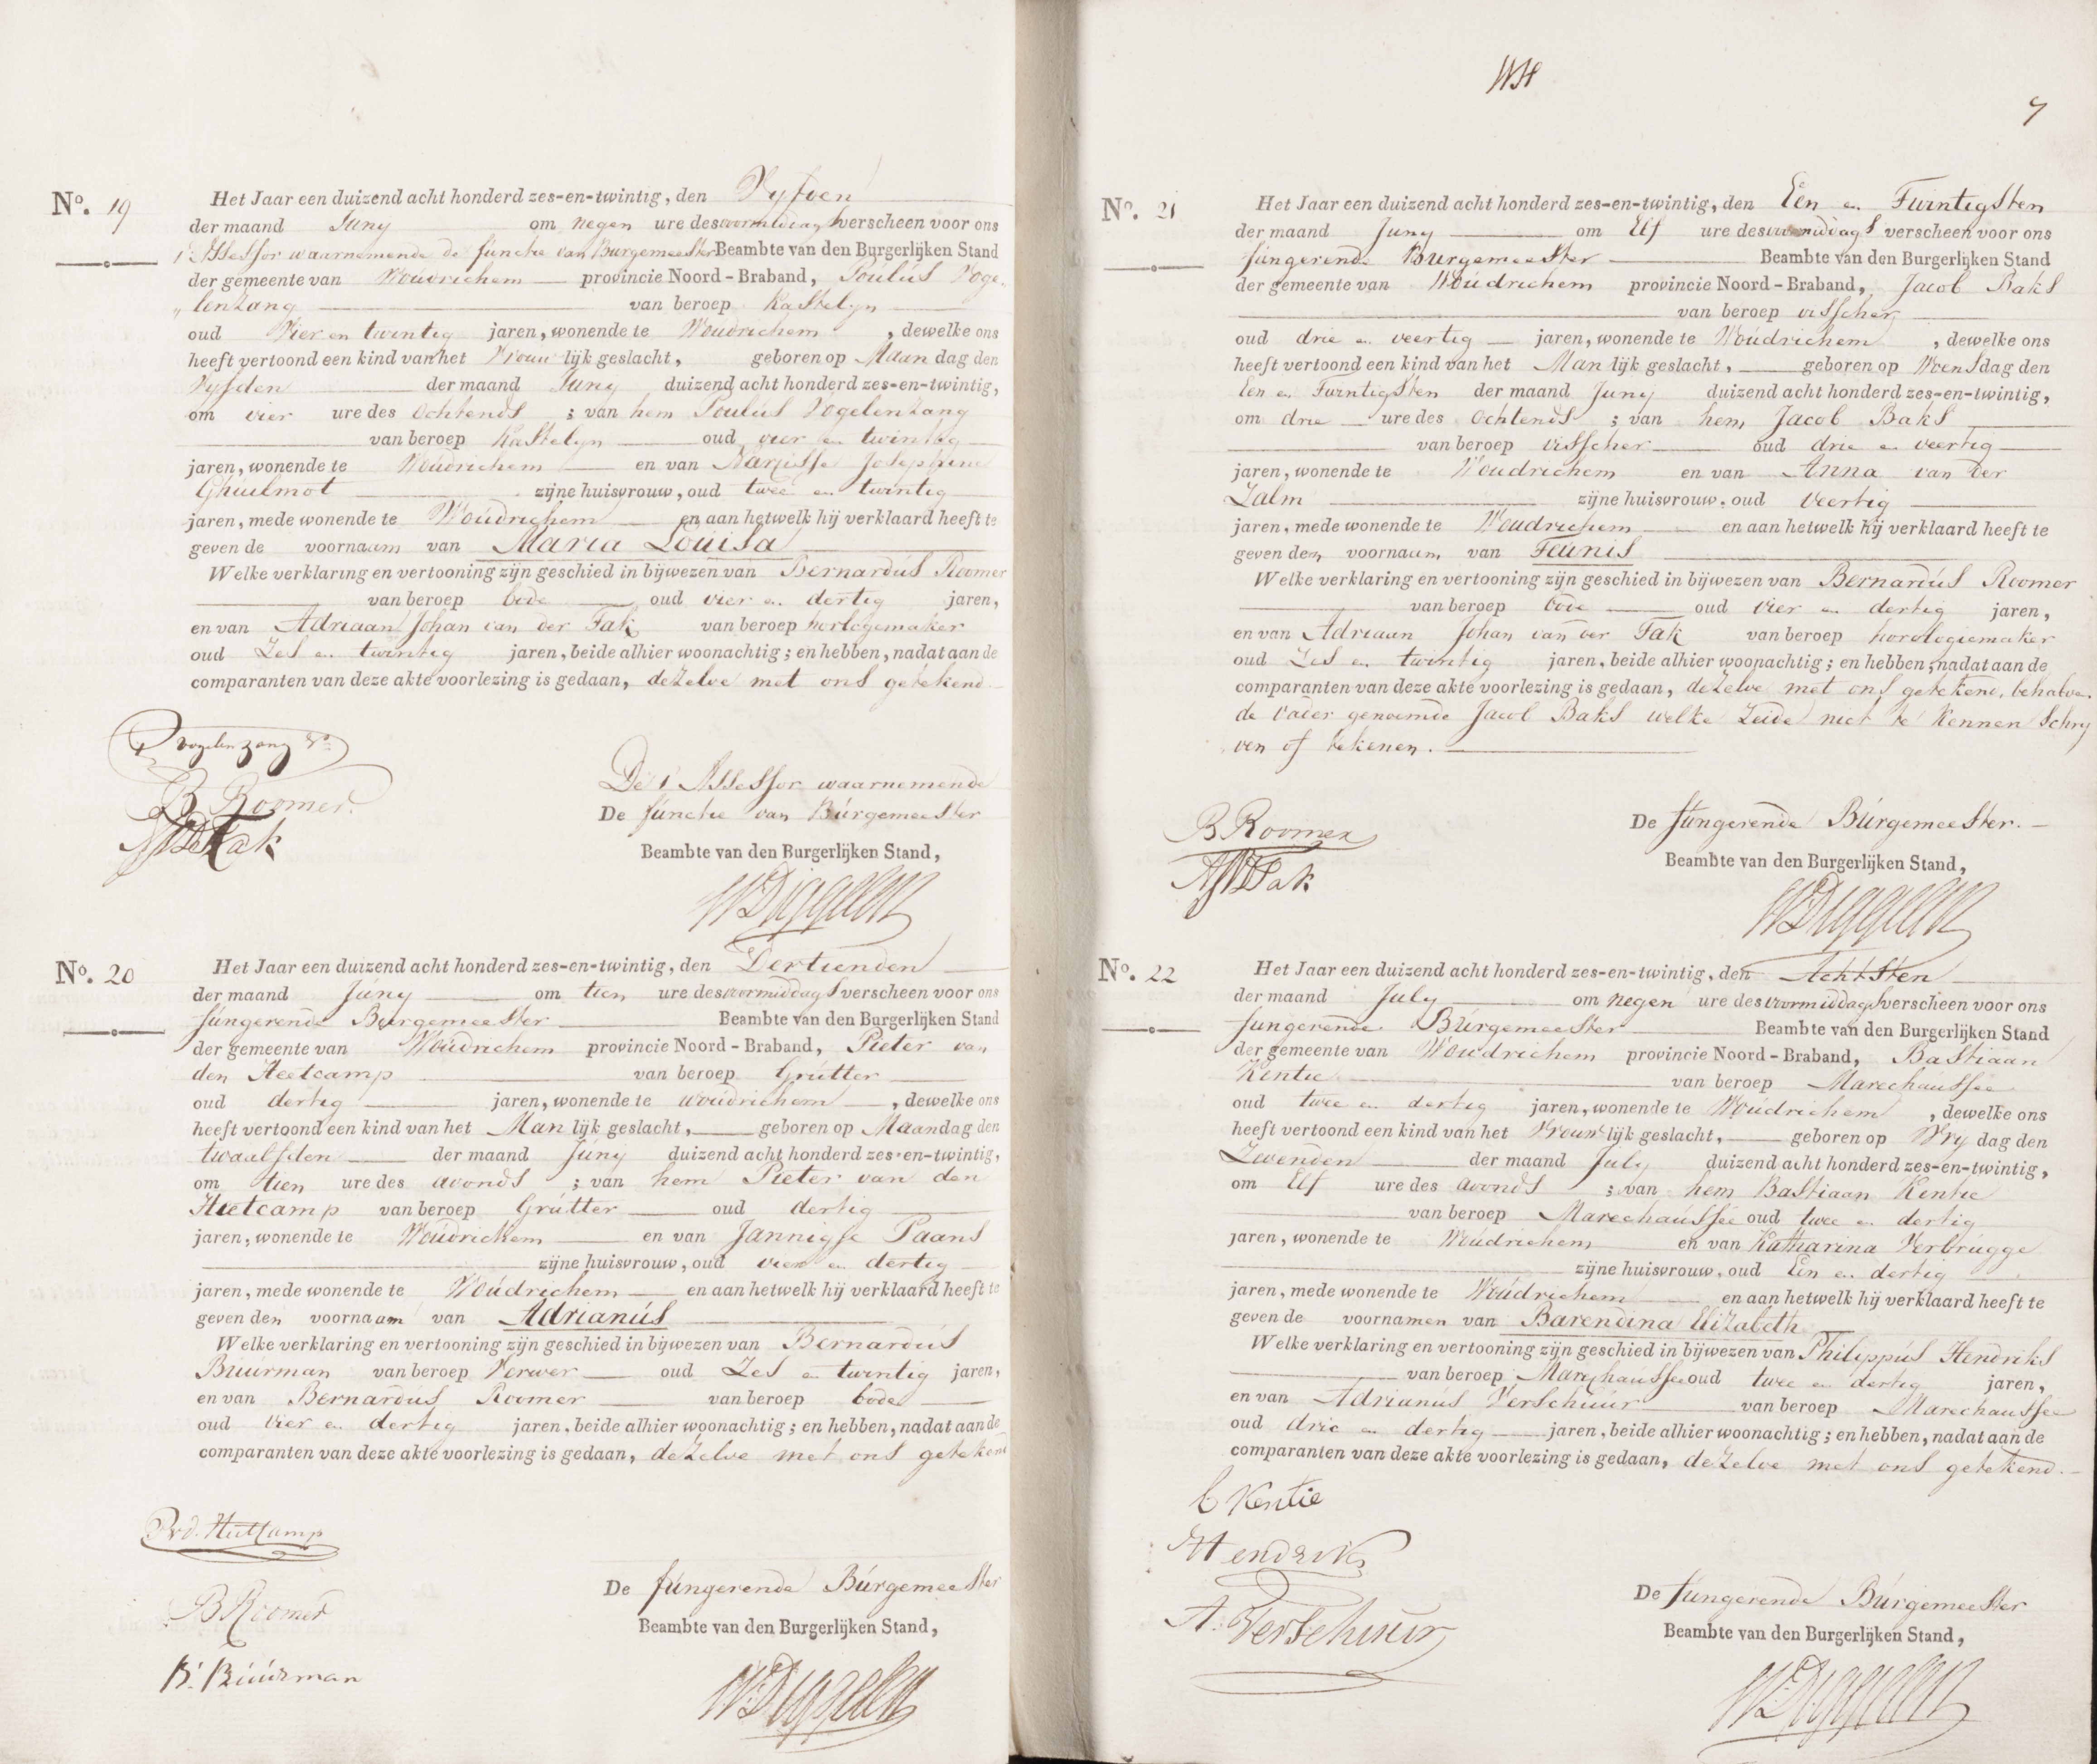 No. 19
Het Jaar een duizend acht honderd zes-en-twintig, den Vyfden
der maand Juny om negen ure des voormiddags verscheen voor ons
1e Assessor waarnemende de functie van Burgemeester Beambte van den Burgerlijken Stand
der gemeente van Woudrichem provincie Noord-Braband, Poulus Voge-
„lenzang van beroep Kastelyn
oud Vier en twintig jaren, wonende te Woudrichem, dewelke ons
heeft vertoond een kind van het Vrouwlijk geslacht, geboren op Maandag den
Vyfden der maand Juny duizend acht honderd zes-en-twintig,
om vier ure des ochtends; van hem Poulus Vogelenzang
van beroep Kastelyn oud vier en twintig
jaren, wonende te Woudrichem en van Narcisse Josephine
Ghiulmot zijne huisvrouw, oud twee en twintig
jaren, mede wonende te Woudrichem en aan hetwelk hij verklaard heeft te
geven de voornaam van Maria Louisa
Welke verklaring en vertooning zijn geschied in bijwezen van Bernardus Roomer
van beroep bode oud vier en dertig jaren,
en van Adriaan Johan van der Tak van beroep horlogemaker
oud Zes en twintig jaren, beide alhier woonachtig; en hebben, nadat aan de
comparanten van deze akte voorlezing is gedaan, dezelve met ons getekend
P vogelenzang
B Roomer
AJVDTak
De 1e Assessor waarnemende
De functie van Burgemeester
Beambte van den Burgerlijken Stand,
No. 20
Het Jaar een duizend acht honderd zes-en-twintig, den Dertienden
der maand Juny om tien ure des voormiddags verscheen voor ons
fungerende Burgemeester Beambte van den Burgerlijken Stand
der gemeente van Woudrichem provincie Noord-Braband, Pieter van
den Heetcamp van beroep Grutter
oud dertig jaren, wonende te woudrichem, dewelke ons
heeft vertoond een kind van het Manlijk geslacht, geboren op Maandag den
twaalfden der maand Juny duizend acht honderd zes-en-twintig,
om tien ure des avonds; van hem Pieter van den
Heetcamp van beroep Grutter oud dertig
jaren, wonende te Woudrichem en van Jannigje Paans
zijne huisvrouw, oud vier en dertig
jaren, mede wonende te Woudrichem en aan hetwelk hij verklaard heeft te
geven den voornaam van Adrianus
Welke verklaring en vertooning zijn geschied in bijwezen van Bernardus
Buurman van beroep Verwer oud Zes en twintig jaren,
en van Bernardus Roomer van beroep bode
oud vier en dertig jaren, beide alhier woonachtig; en hebben, nadat aan de
comparanten van deze akte voorlezing is gedaan, dezelve met ons getekend
B Roomer
B. Buurman
De fungerende Burgemeester
Beambte van den Burgerlijken Stand,
7
No. 21
Het Jaar een duizend acht honderd zes-en-twintig, den Een en Twintigsten
der maand Juny om Elf ure des voormiddags verscheen voor ons
fungerende Burgemeester Beambte van den Burgerlijken Stand
der gemeente van Woudrichem provincie Noord-Braband, Jacob Baks
van beroep visscher
oud drie en veertig jaren, wonende te Woudrichem, dewelke ons
heeft vertoond een kind van het Manlijk geslacht, geboren op Woensdag den
Een en Twintigsten der maand Juny duizend acht honderd zes-en-twintig,
om drie ure des ochtends; van hem Jacob Baks
van beroep visscher oud drie en veertig
jaren, wonende te Woudrichem en van Anna van der
Zalm zijne huisvrouw, oud Veertig
jaren, mede wonende te Woudrichem en aan hetwelk hij verklaard heeft te
geven den voornaam van Teunis
Welke verklaring en vertooning zijn geschied in bijwezen van Bernardus Roomer
van beroep bode oud vier en dertig jaren,
en van Adriaan Johan van der Tak van beroep horologiemaker
oud Zes en twintig jaren, beide alhier woonachtig; en hebben, nadat aan de
comparanten van deze akte voorlezing is gedaan, dezelve met ons getekend, behalve
de vader genoemde Jacob Baks welke zeide niet te kennen schry
ven of tekenen.
B Roomer
AJVDTak
De fungerende Burgemeester.
Beambte van den Burgerlijken Stand,
No. 22
Het Jaar een duizend acht honderd zes-en-twintig, den Achtsten
der maand July om negen ure des voormiddags verscheen voor ons
fungerende Burgemeester Beambte van den Burgerlijken Stand
der gemeente van Woudrichem provincie Noord-Braband, Bastiaan
Kentie van beroep Marechaussee
oud twee en dertig jaren, wonende te Woudrichem, dewelke ons
heeft vertoond een kind van het Vrouwlijk geslacht, geboren op Vrydag den
Zevenden der maand July duizend acht honderd zes-en-twintig,
om Elf ure des avonds; van hem Bastiaan Kentie
van beroep Marechaussee oud twee en dertig
jaren, wonende te Woudrichem en van Katharina Verbrugge
zijne huisvrouw, oud Een en dertig
jaren, mede wonende te Woudrichem en aan hetwelk hij verklaard heeft te
geven de voornamen van Barendina Elizabeth
Welke verklaring en vertooning zijn geschied in bijwezen van Philippus Hendriks
van beroep Marechaussee oud twee en dertig jaren,
en van Adrianus Verschuur van beroep Marechaussee
oud drie en dertig jaren, beide alhier woonachtig; en hebben, nadat aan de
comparanten van deze akte voorlezing is gedaan, dezelve met ons getekend.
Kentie
Hendriks
A. Verschuur
De fungerende Burgemeester
Beambte van den Burgerlijken Stand,